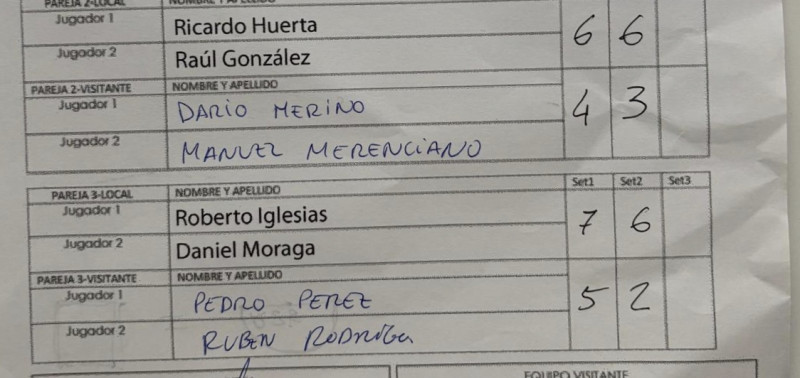 PAREJA 2-LOCAL NOMBRE Y APELLIDO
Jugador 1 Ricardo Huerta 6 6
Jugador 2 Raúl González
PAREJA 2-VISITANTE NOMBRE Y APELLIDO
Jugador 1 DARIO MERINO 4 3
Jugador 2 MANUEL MERENCIANO
PAREJA 3-LOCAL NOMBRE Y APELLIDO Set1 Set2 Set3
Jugador 1 Roberto Iglesias 7 6
Jugador 2 Daniel Moraga
PAREJA 3-VISITANTE NOMBRE Y APELLIDO
Jugador 1 PEDRO PEREZ 5 2
Jugador 2 RUBEN
EQUIPO VISITANTE